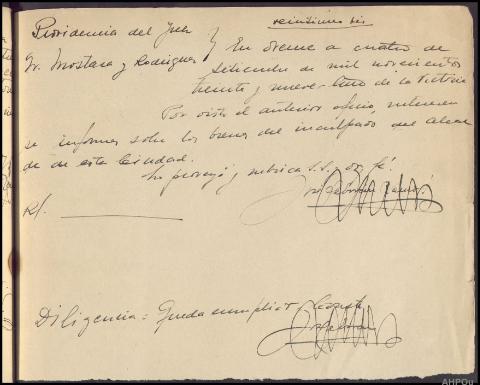 veintinueve bis
Providencia del Juez
Sr. Mostaza y Rodriguez } En Orense a cuatro de
Septiembre de mil novecientos
treinta y nueve. Año de la Victoria
Por visto el anterior oficio, interesen
se informes sobre los bienes del inculpado del Alcal
de de esta Ciudad.
Lo proveyó y rubrica S.S. doy fé.
R/.
Diligencia = Queda cumplido
AHPOu